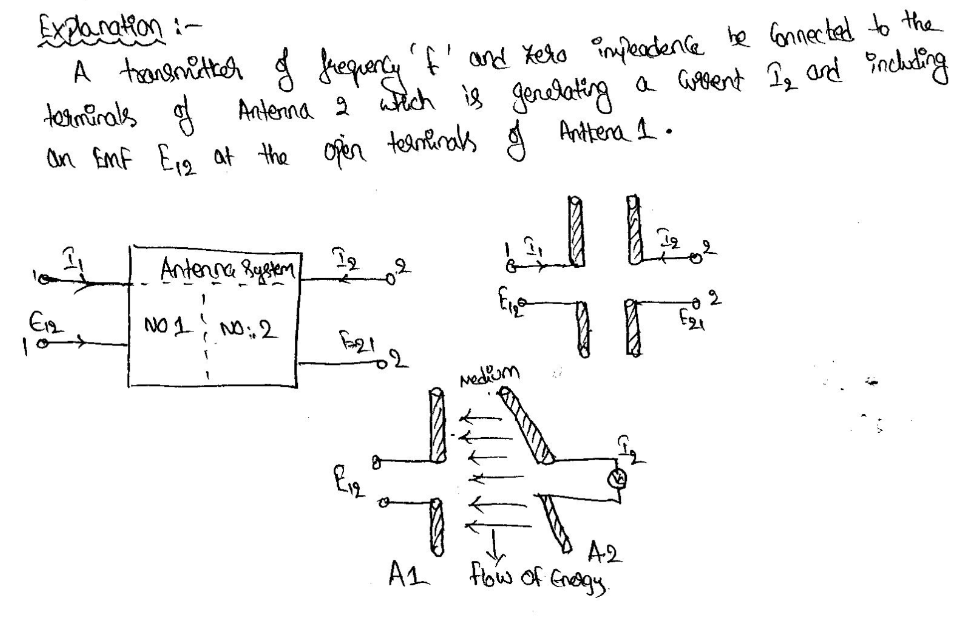 Explanation :-
A transmitter of frequency 'f' and zero impleadence be Connected to the
terminals of Antenna 2 which is generating a current I2 and including
an EMF E12 at the open terminals of Anttena 1.
I1
1
Antenna System
I2
2
E12
1
NO 1
NO:2
E21
2
1
I1
I2
2
E12
E21
2
Medium
E12
I2
A1
flow of Energy
A2